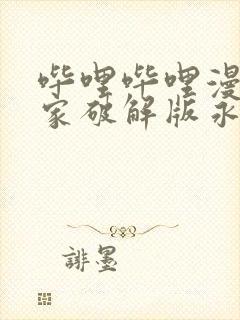 哔哩哔哩漫
家破解版永
誹墨